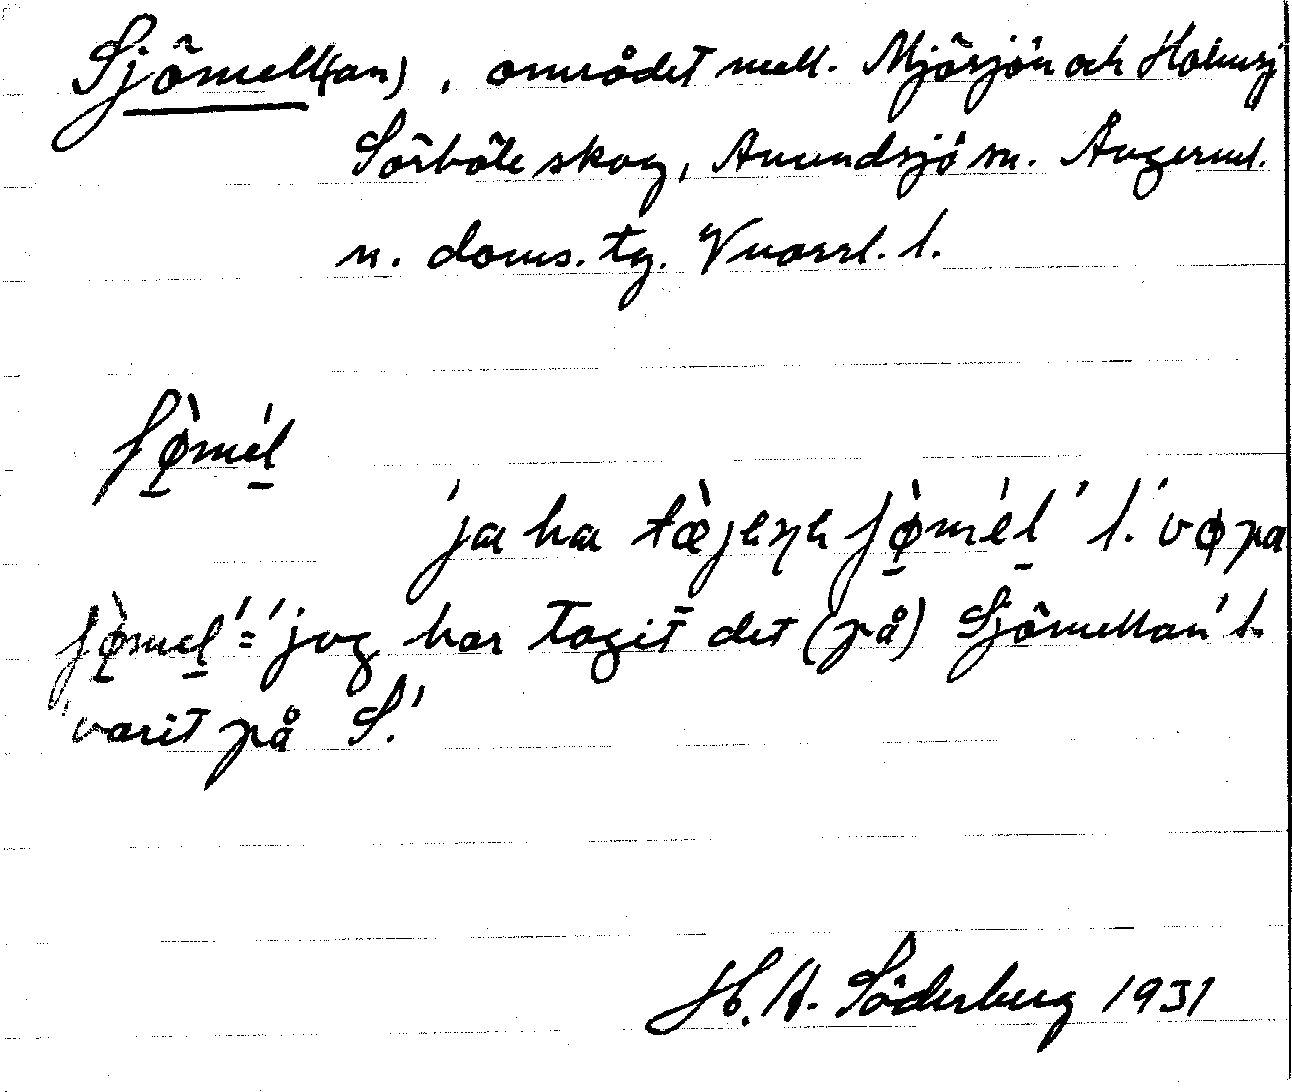 Sjömell(an), området mell. Mjösjön och Holmsj
Sörböle skog, Anundsjö sn. Ångerml.
n. doms. tg. Vnorrl. l.
ʃø̀mél
'ja ha tæ̀jeɳe ʃø̀mél' l. 'vø pa
ʃø̀mel' = 'jag har tagit det (på) Sjömellan' l.
'varit på S.'
H. A. Söderberg 1931